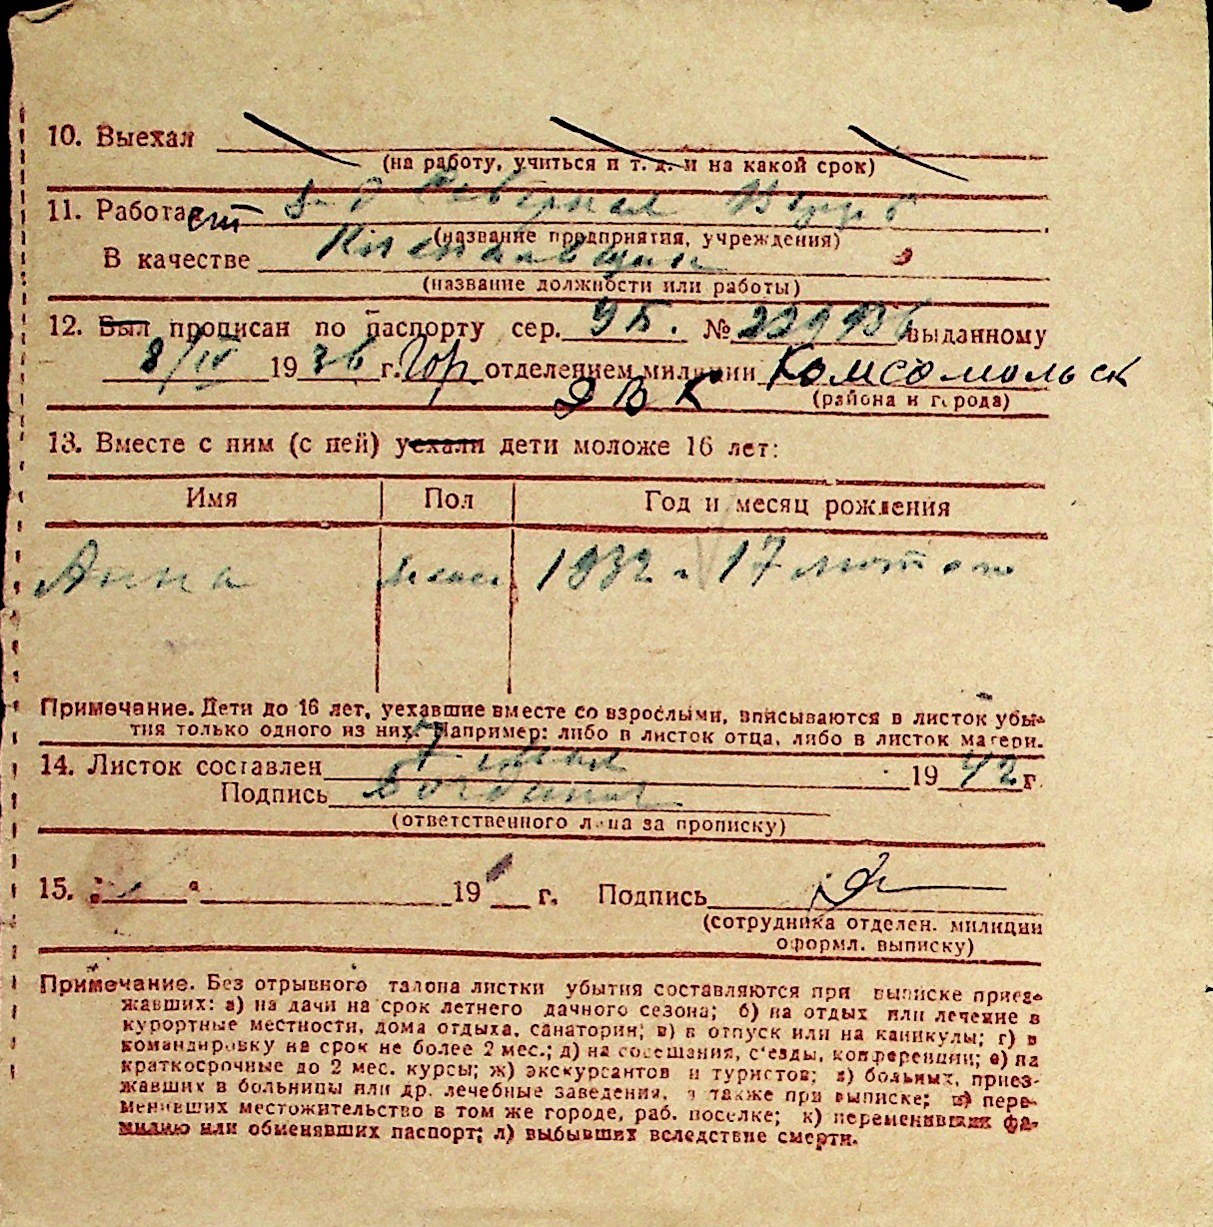 10. Выехал
(на работу, учиться и т. д. и на какой срок)
11. Работает з-д Северная Верфь
(название предприятия, учреждения)
В качестве
(название должности или работы)
12. Был прописан по паспорту сер. УБ. № выданному
8/IV 1936 г. Гор. отделением милиции Комсомольск
(района и города)
ДВК
13. Вместе с ним (с ней) уехали дети моложе 16 лет:
Имя Пол Год и месяц рождения
Анна 1932 17
Примечание. Дети до 16 лет, уехавшие вместе со взрослыми, вписываются в листок убы-
тия только одного из них. Например: либо в листок отца, либо в листок матери.
14. Листок составлен 7 1942 г.
Подпись
(ответственного лица за прописку)
15. 19 г. Подпись
(сотрудника отделен. милиции
оформл. выписку)
Примечание. Без отрывного талона листки убытия составляются при выписке приез-
жавших: а) на дачи на срок летнего дачного сезона; б) на отдых или лечение в
курортные местности, дома отдыха, санатории; в) в отпуск или на каникулы; г) в
командировку на срок не более 2 мес.; д) на совещания, с'езды, конференции; е) на
краткосрочные до 2 мес. курсы; ж) экскурсантов и туристов; з) больных, приез-
жавших в больницы или др. лечебные заведения, а также при выписке; и) пере-
менивших местожительство в том же городе, раб. поселке; к) переменивших фа-
милию или обменявших паспорт; л) выбывших вследствие смерти.